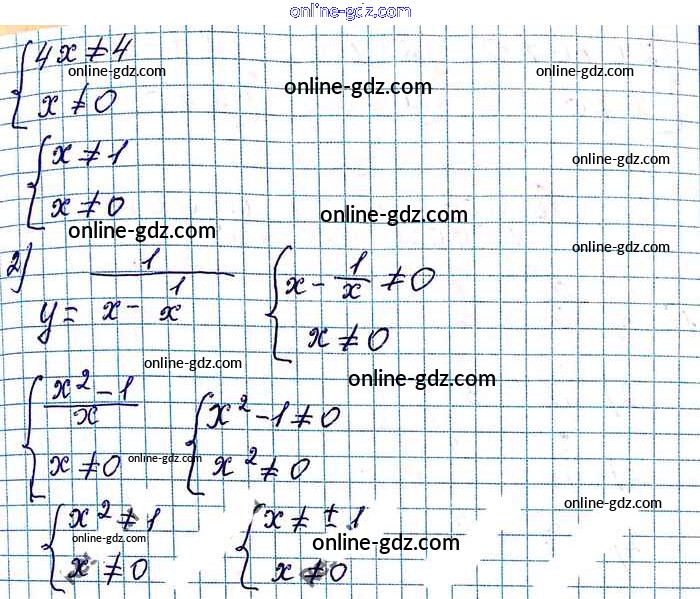 online-gdz.com
{ 4x ≠ 4
online-gdz.com online-gdz.com online-gdz.com
x ≠ 0
{ x ≠ 1
online-gdz.com
x ≠ 0
online-gdz.com online-gdz.com
online-gdz.com
2) y = 1 / (x - 1/x) { x - 1/x ≠ 0
x ≠ 0
online-gdz.com online-gdz.com
{ (x² - 1)/x { x² - 1 ≠ 0
x ≠ 0 online-gdz.com x² ≠ 0
online-gdz.com
{ x² ≠ 1 { x ≠ ± 1
online-gdz.com online-gdz.com
x ≠ 0 x ≠ 0